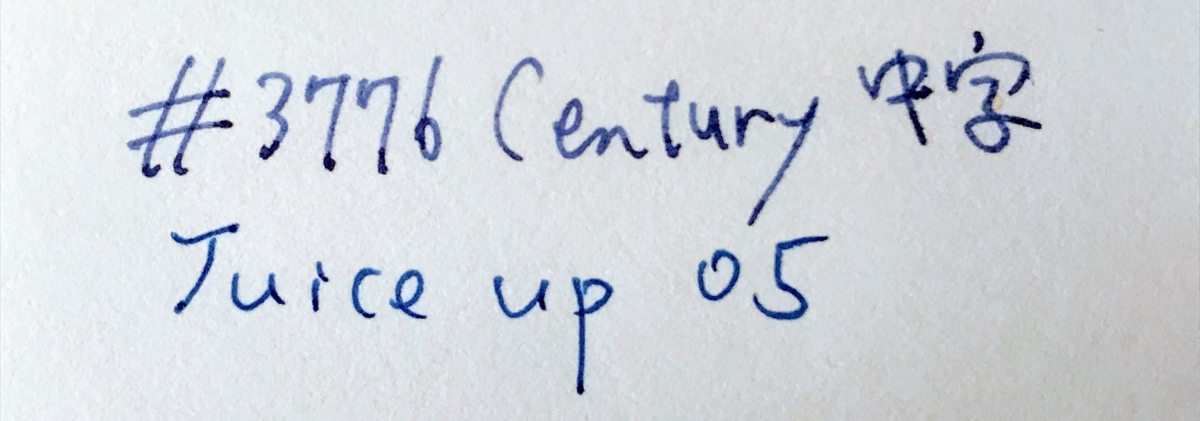 #3776 Century 中字
Juice up 05